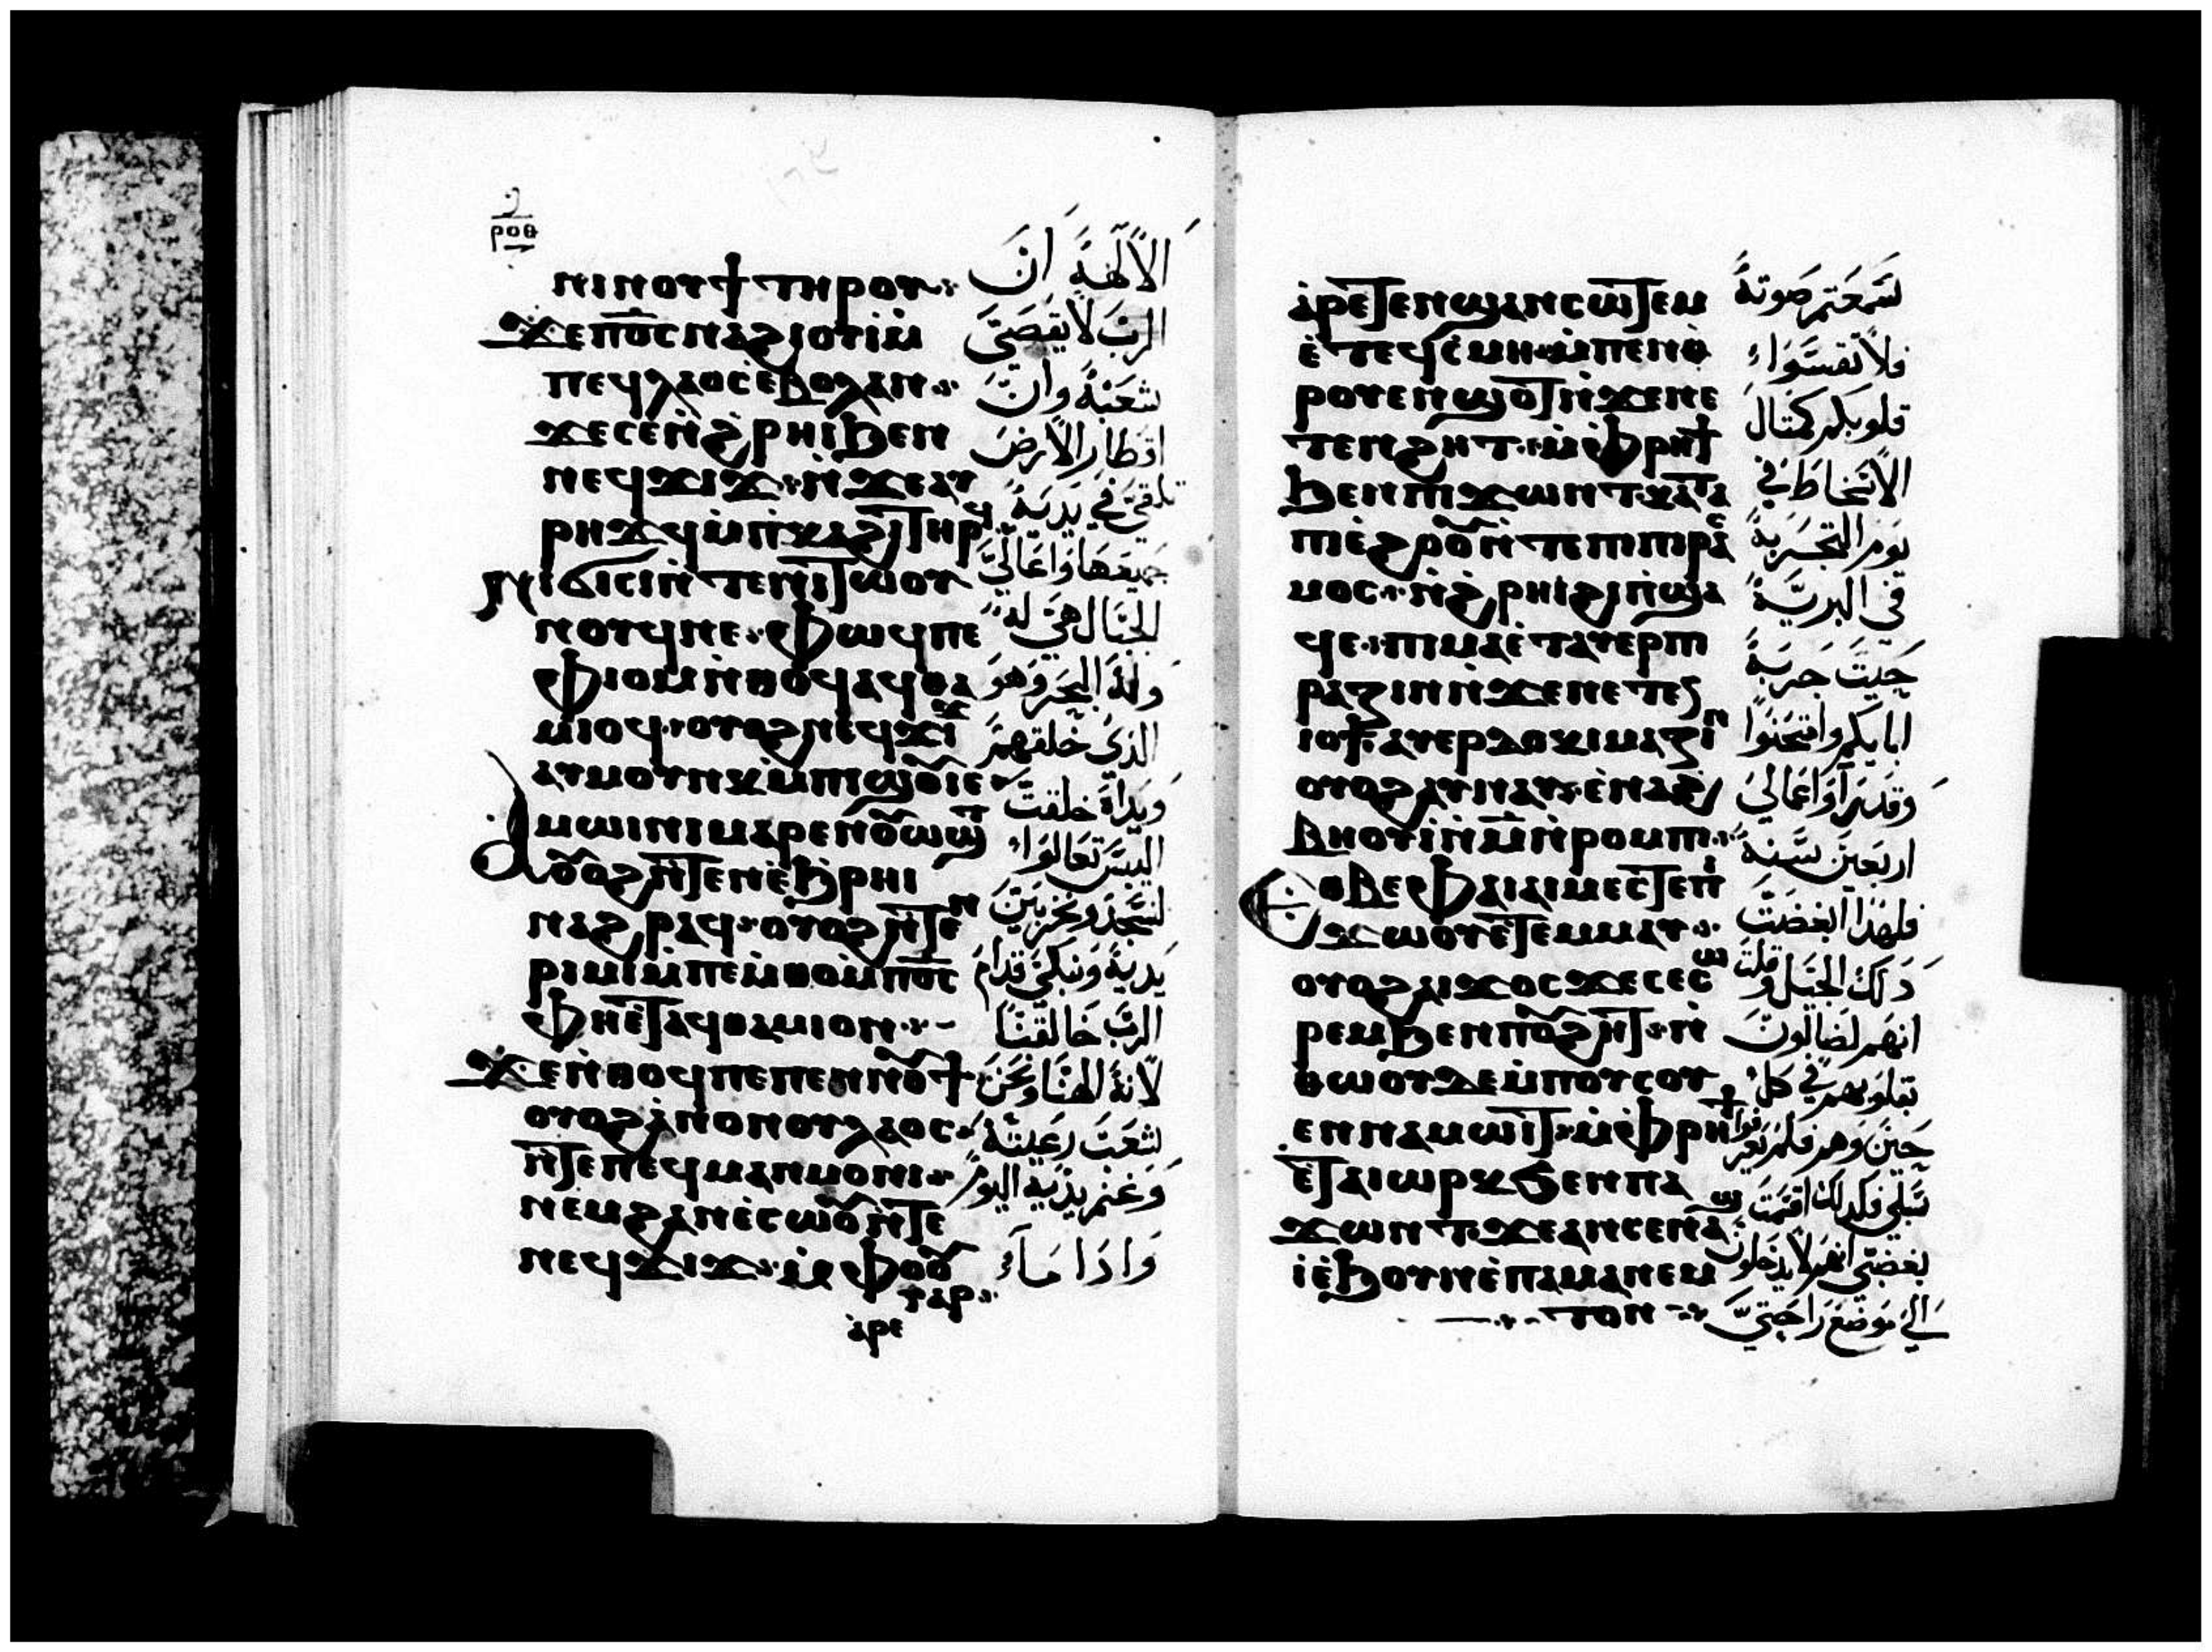 ⲣⲟⲑ
ⲛⲓⲛⲟⲩϯ ⲧⲏⲣⲟⲩ
ϫⲉⲡⲟ̅ⲥ̅ⲛⲁϩⲓⲟⲩⲓ̀ⲙ̀
ⲡⲉϥⲗⲁⲟⲥⲉ̀ⲃⲟⲗⲁⲛ
ϫⲉⲥⲉⲛ̀ϩ̀ⲣⲏⲓϧⲉⲛ
ⲛⲉϥϫⲓϫ ⲛ̀ϫⲉⲁⲩ
ⲣⲏϫϥⲙ̀ⲡ̀ⲕⲁϩⲓⲧⲏⲣϥ
ⲛⲓϭⲓⲥⲓⲛ̀ⲧⲉⲛⲓⲧⲱⲟⲩ
ⲛⲟⲩϥⲛⲉ ⲫⲱϥⲡⲉ
ⲫⲓⲟⲙⲛ̀ⲑⲟϥⲁϥⲑⲁ
ⲙⲓⲟϥ ⲟⲩⲟϩⲛⲉϥϫⲓϫ
ⲁⲩⲙⲟⲩⲛⲕⲙ̀ⲡⲓϣⲟ̅ⲓⲉ
ⲁⲙⲱⲓⲛⲓⲙⲁⲣⲉⲛⲟ̅ⲱϣⲧ
ⲟ̅ⲟϩⲛ̀ⲧⲉⲛϩⲓⲉ̀ϧ̀ⲣⲏⲓ
ⲛⲁϩⲣⲁϥ ⲟⲩⲟϩⲛ̀ⲧⲉⲛ
ⲣⲓⲙⲓⲙ̀ⲡⲉⲙ̀ⲑⲟⲙ̀ⲡⲟ̅ⲥ̅
ⲫⲏⲉ̀ⲧⲁϥⲑⲁⲙⲓⲟⲛ
ϫⲉⲛ̀ⲑⲟϥⲡⲉⲡⲉⲛⲛⲟ̅ϯ
ⲟⲩⲟϩⲁ̀ⲛⲟⲛⲟⲩⲗⲁⲟⲥ
ⲛ̀ⲧⲉⲡⲉϥⲙⲁⲛⲙⲟⲛⲓ
ⲛⲉⲙϩⲁⲛⲉ̀ⲥⲱⲟ̅ⲛ̀ⲧⲉ
ⲛⲉϥϫⲓϫ ⲙ̀ⲫⲟⲟ̅
ⲅⲁⲣ
ⲁ̀ⲣⲉ
الالهة ان
الرب لا يقصي
شعبه وان
اقطار الارض
في يديه
جميعها واعالي
الجبال هي له
وله البحر وهو
الذي خلقهم
ويداه خلقت
اليبس تعالوا
لنسجد ونخر بين
يديه ونبكي قدام
الرب خالقنا
لانه الهنا ونحن
شعب رعيته
وغنم يديه اليوم
واذا ما
ⲁ̀ⲣⲉⲧⲉⲛϣⲁⲛⲥⲱⲧⲉⲙ
ⲉ̀ⲧⲉϥⲥ̀ⲙⲏ ⲙ̀ⲡⲉⲛⲑ̀
ⲣⲟⲩⲉⲛϣⲟⲧⲛ̀ϫⲉⲛⲉ
ⲧⲉⲛϩⲏⲧ ⲙ̀ⲫ̀ⲣⲏϯ
ϧⲉⲛⲡⲓϫⲱⲛⲧ ⲕⲁⲧⲁ
ⲡⲓⲉ̀ϩⲟⲟ̅ⲛ̀ⲧⲉⲡⲓⲡⲓⲣⲁⲥ
ⲙⲟⲥ ⲛ̀ϩ̀ⲣⲏⲓϩⲓⲡ̀ϣⲁ
ϥⲉ ⲡⲓⲙⲁⲉ̀ⲧⲁⲩⲉⲣⲡⲓ
ⲣⲁⲍⲓⲛⲛ̀ϫⲉⲛⲉⲧⲉⲛ
ⲓⲟϯ ⲁⲩⲉⲣⲇⲟⲕⲓⲙⲁⲍⲓⲛ
ⲟⲩⲟϩⲁⲩⲛⲁⲩ ⲉ̀ⲛⲁϩ
ⲃⲏⲟⲩⲓ̀ⲛ̀ⲙ̅ⲛ̀ⲣⲟⲙⲡⲓ
ⲉⲑⲃⲉⲫⲁⲓⲁⲓⲙⲉⲥⲧⲉⲡⲓ
ϫⲱⲟⲩⲉ̀ⲧⲉⲙⲙⲁⲩ
ⲟⲩⲟϩⲁⲓϫⲟⲥϫⲉⲥⲉⲥⲱ
ⲣⲉⲙϧⲉⲛⲡⲟ̅ϩⲏⲧ ⲛ̀
ⲑⲱⲟⲩⲇⲉⲙ̀ⲡⲟⲩⲥⲟⲩ
ⲉⲛⲛⲁⲙⲱⲓⲧ ⲙ̀ⲫ̀ⲣⲏϯ
ⲉ̀ⲧⲁⲓⲱⲣⲕϧⲉⲛⲡⲁ
ϫⲱⲛⲧ ϫⲉⲁⲛⲥⲉⲛⲁϣ
ⲓⲉ̀ϧⲟⲩⲛⲉ̀ⲡⲁⲙⲁⲛⲉⲙ
ⲧⲟⲛ
سمعتم صوته
فلا تقسوا
قلوبكم كمثال
الاسخاط في
يوم التجربة
في البرية
حيث جربه
اباكم وامتحنوا
وقد راوا اعمالي
اربعين سنة
فلهذا ابغضت
ذلك الجيل وقلت
انهم لضالون
بقلوبهم في كل
حين وهم فلم يعرفوا
سبلي فكذلك اقسمت
بغضبي انهم لا يدخلون
الي موضع راحتي